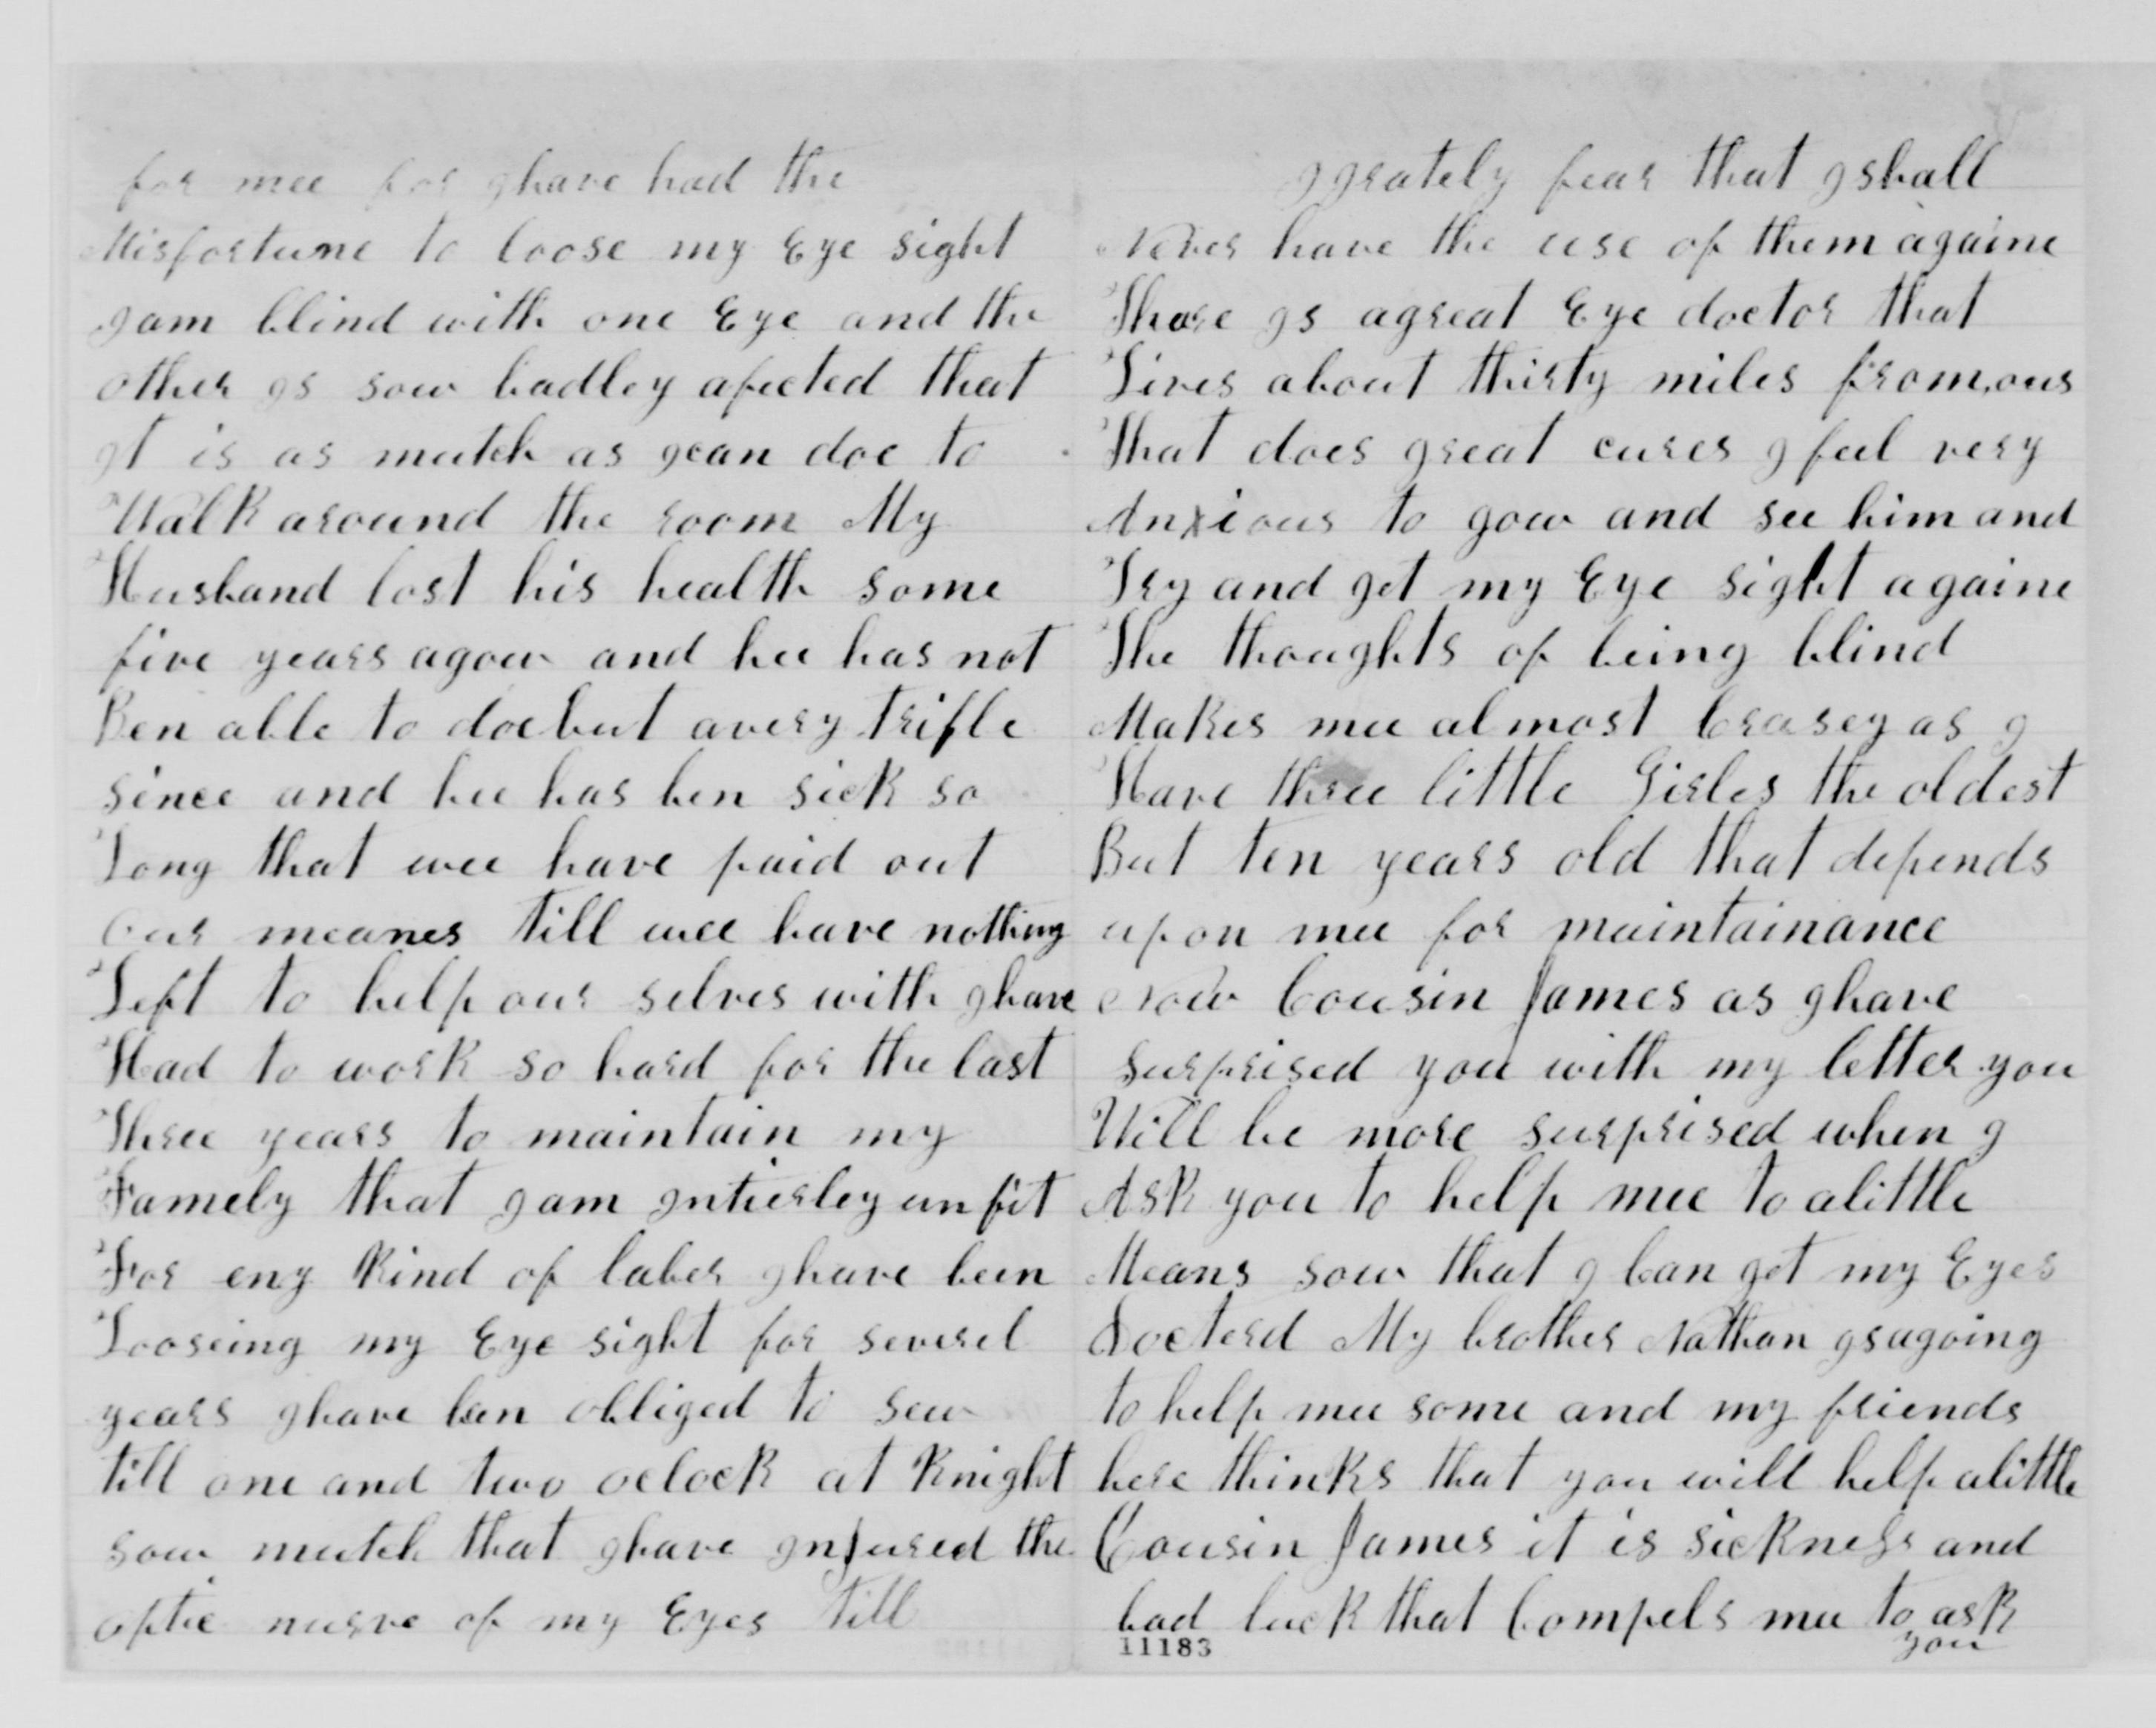 for mee for I have had the
Misfortune to loose my Eye sight
I am blind with one Eye and the
other Is sow badley afected that
It is as mutch as I can doe to
Walk around the room My
Husband lost his health some
five years agow and hee has not
Ben able to doe but a very trifle
since and hee has ben sick so
Long that wee have paid out
our meanes till wee have nothing
Left to help our selves with I have
Had to work so hard for the last
Three years to maintain my
Famely that I am Intierley unfit
For eny kind of laber I have been
Looseing my Eye sight for severel
years I have ben obliged to sew
till one and two oclock at Knight
sow mutch that I have Injured the
optic nurve of my Eyes till
I grately fear that I shall
Never have the use of them againe
Thare Is a great Eye doctor that
Lives about thirty miles from ous
That does great cures I feel very
Anxious to gow and see him and
Try and get my Eye sight againe
The thoughts of being blind
Makes mee almost Crasey as I
Have three little Girles the oldest
But ten years old that depends
upon mee for maintainance
Now Cousin James as I have
surprised you with my letter you
Will be more surprised when I
Ask you to help mee to a little
Means sow that I Can get my Eyes
Docterd My brother Nathan Is agoing
to help mee some and my friends
here thinks that you will help a little
Cousin James it is sickness and
bad luck that Compels mee to ask
you
11183